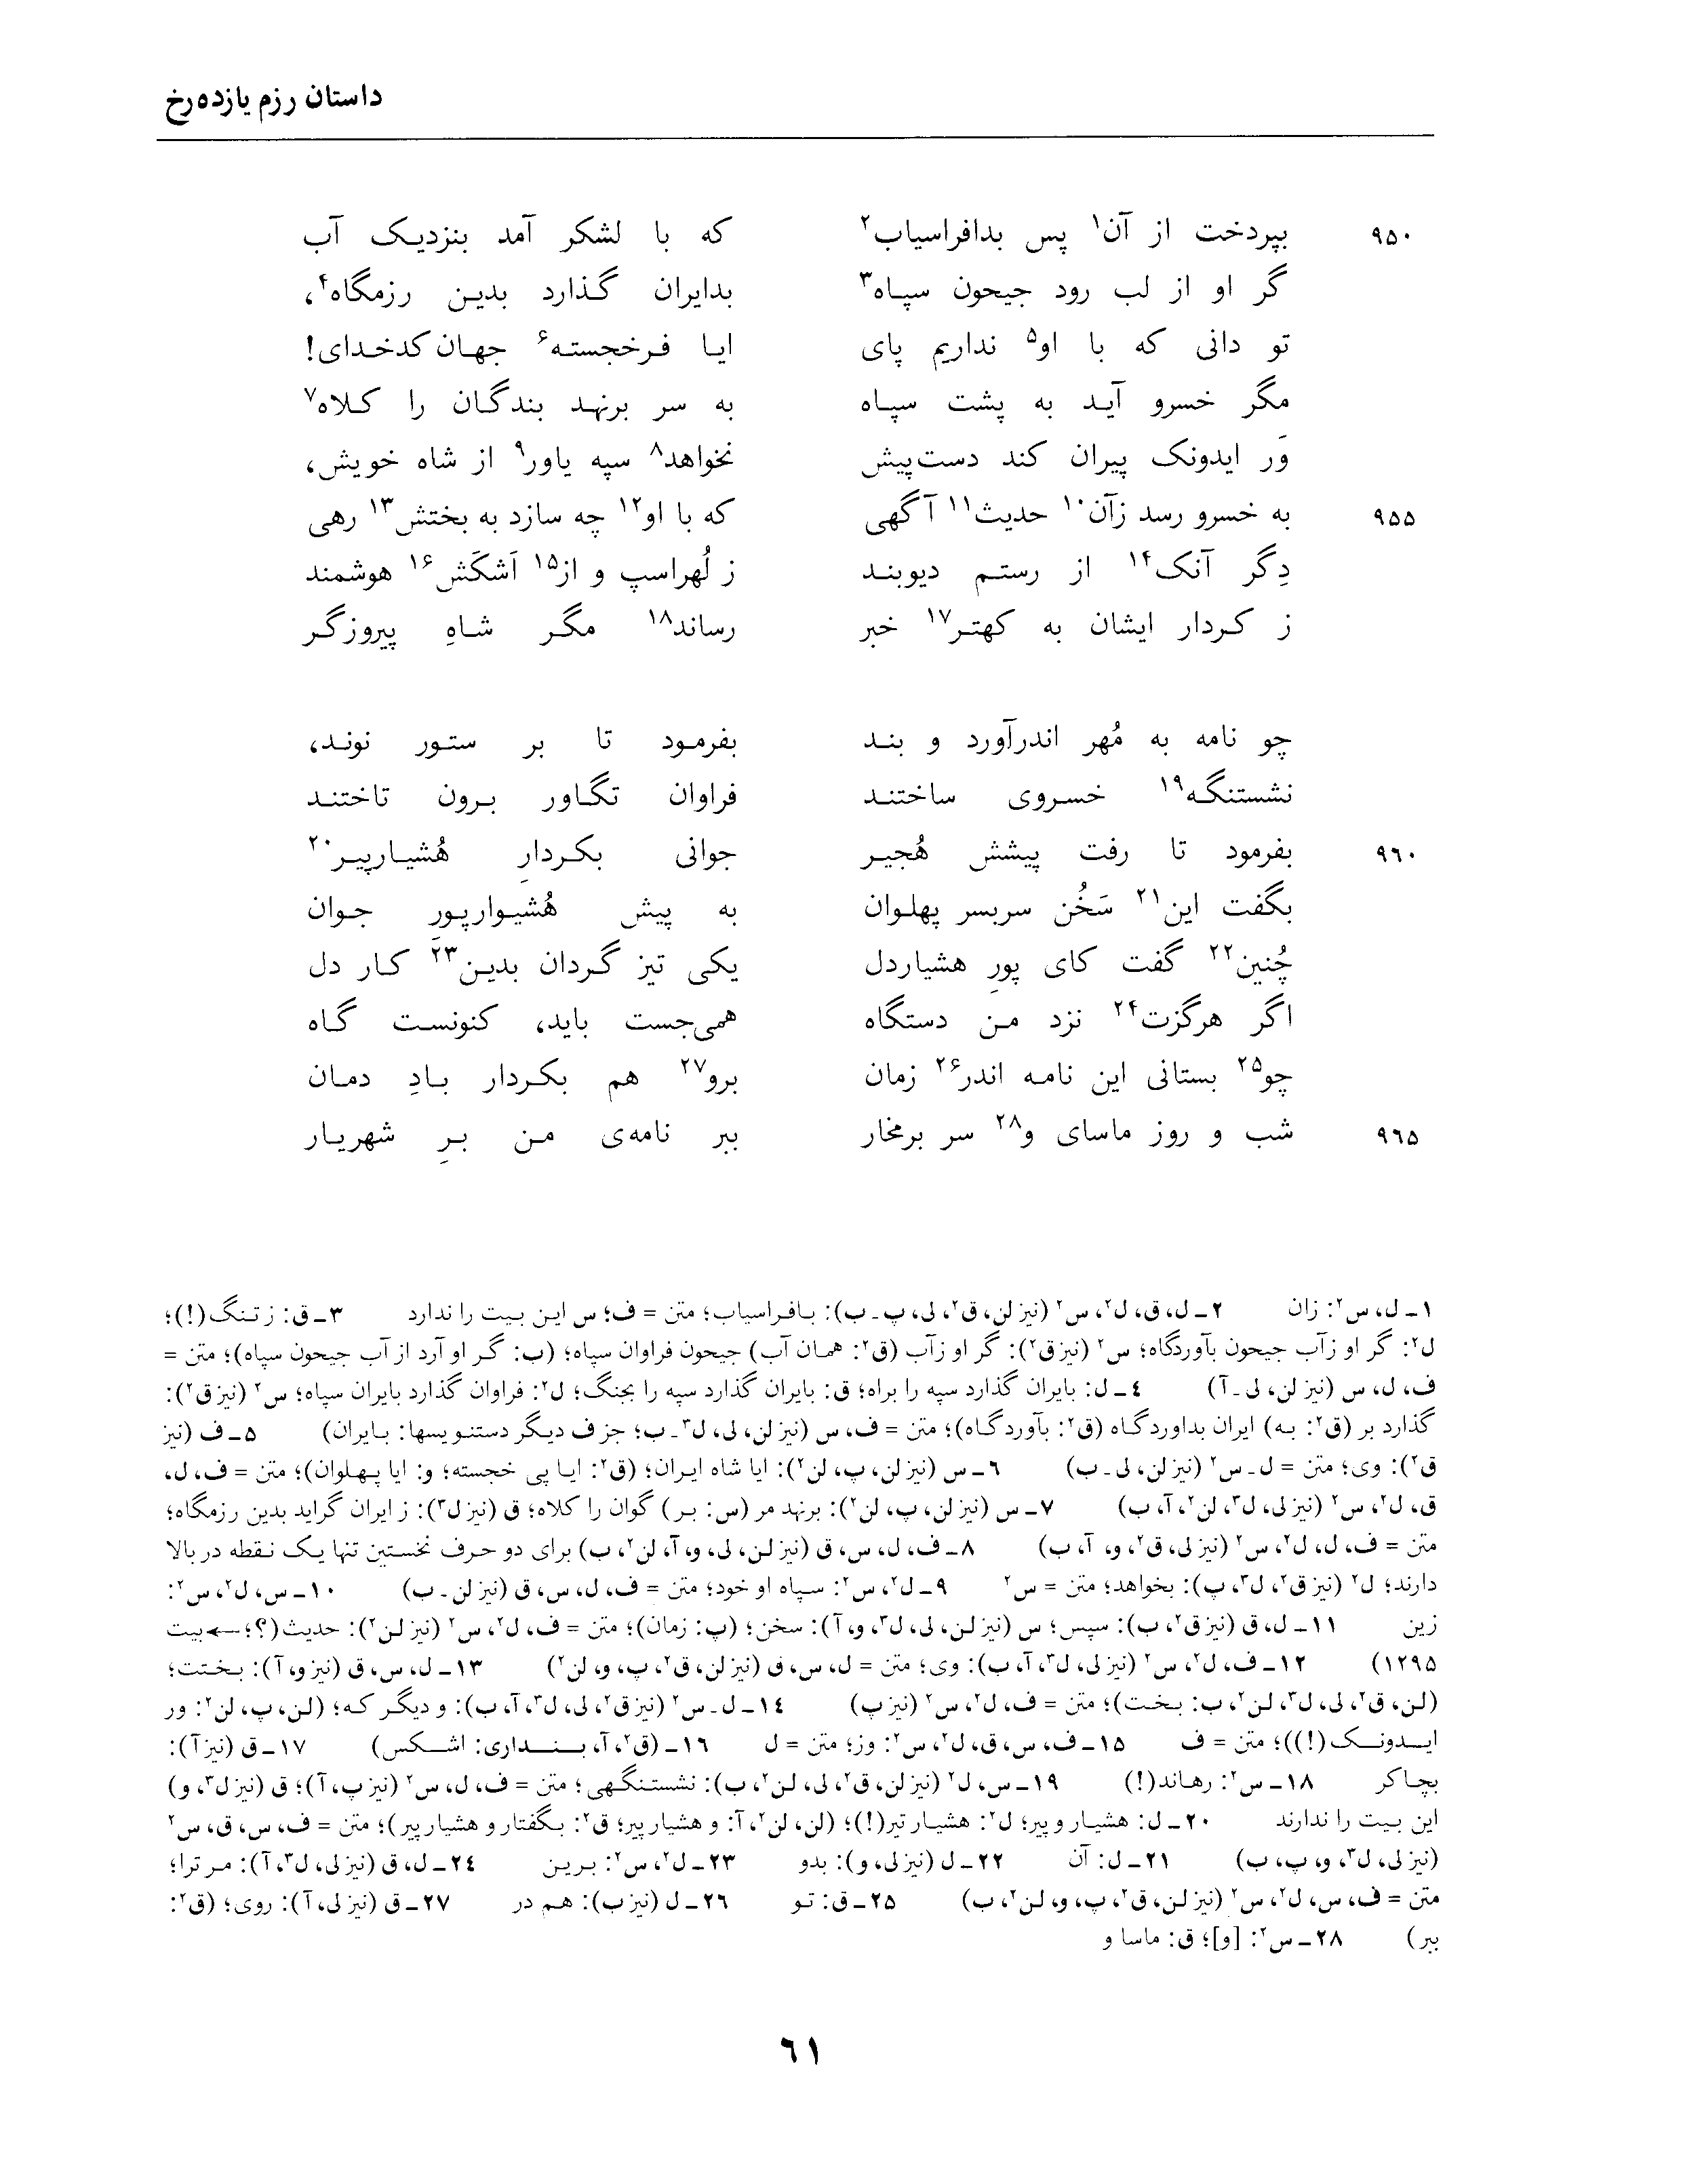 داستان رزم یازده‌رخ
۹۵۰ بپردخت از آن۱ پس بدافراسیاب۲ که با لشکر آمد بنزدیک آب
گر او از لب رود جیحون سپاه۳ بدایران گذارد بدین رزمگاه۴،
تو دانی که با او۵ نداریم پای ایا فرخجسته۶ جهان کدخدای!
مگر خسرو آید به پشت سپاه به سر برنهد بندگان را کلاه۷
وَر ایدونک پیران کند دست‌پیش نخواهد۸ سپه یاور۹ از شاه خویش،
۹۵۵ به خسرو رسد زآن۱۰ حدیث۱۱ آگهی که با او۱۲ چه سازد به بختش۱۳ رهی
دِگر آنک۱۴ از رستم دیوبند ز لُهراسپ و از۱۵ اَشکَش۱۶ هوشمند
ز کردار ایشان به کهتر۱۷ خبر رساند۱۸ مگر شاهِ پیروزگر
چو نامه به مُهر اندرآورد و بند بفرمود تا بر ستور نوند،
نشستنگه۱۹ خسروی ساختند فراوان تگاور برون تاختند
۹۶۰ بفرمود تا رفت پیشش هُجیر جوانی بکردارِ هُشیارپیر۲۰
بگفت این۲۱ سَخُن سربسر پهلوان به پیش هُشیوارپورِ جوان
چُنین۲۲ گفت کای پورِ هشیاردل یکی تیز گردان بدین۲۳ کار دل
اگر هرگزت۲۴ نزد من دستگاه همی‌جست باید، کنونست گاه
چو۲۵ بستانی این نامه اندر۲۶ زمان برو۲۷ هم بکردار بادِ دمان
۹۶۵ شب و روز ماسای و۲۸ سر برمخار ببر نامه‌ی من برِ شهریار
۱ـ ل، س۲: زان ۲ـ ل، ق، ل۲، س۲ (نیز لن، ق۲، لی، پ ـ ب): بافراسیاب؛ متن = ف؛ س این بیت را ندارد ۳ـ ق: ز تنگ(!)؛
ل۲: گر او زآب جیحون بآوردگاه؛ س۲ (نیز ق۲): گر او زآب (ق۲: همان آب) جیحون فراوان سپاه؛ (ب: گر او آرد از آب جیحون سپاه)؛ متن =
ف، ل، س (نیز لن، لی ـ آ) ۴ـ ل: بایران گذارد سپه را براه؛ ق: بایران گذارد سپه را بجنگ؛ ل۲: فراوان گذارد بایران سپاه؛ س۲ (نیز ق۲):
گذارد بر (ق۲: به) ایران بداوردگاه (ق۲: بآوردگاه)؛ متن = ف، س (نیز لن، لی، ل۳ ـ ب؛ جز ف دیگر دستنویسها: بایران) ۵ـ ف (نیز
ق۲): وی؛ متن = ل ـ س۲ (نیز لن، لی ـ ب) ۶ـ س (نیز لن، پ، لن۲): ایا شاه ایران؛ (ق۲: ایا پی خجسته؛ و: ایا پهلوان)؛ متن = ف، ل،
ق، ل۲، س۲ (نیز لی، ل۳، لن۲، آ، ب) ۷ـ س (نیز لن، پ، لن۲): برنهد مر (س: بر) گوان را کلاه؛ ق (نیز ل۳): ز ایران گراید بدین رزمگاه؛
متن = ف، ل، ل۲، س۲ (نیز لی، ق۲، و، آ، ب) ۸ـ ف، ل، س، ق (نیز لن، لی، و، آ، لن۲، ب) برای دو حرف نخستین تنها یک نقطه در بالا
دارند؛ ل۲ (نیز ق۲، ل۳، پ): بخواهد؛ متن = س۲ ۹ـ ل۲، س۲: سپاه او خود؛ متن = ف، ل، س، ق (نیز لن ـ ب) ۱۰ـ س، ل۲، س۲:
زین ۱۱ـ ل، ق (نیز ق۲، ب): سپس؛ س (نیز لن، لی، ل۳، و، آ): سخن؛ (پ: زمان)؛ متن = ف، ل۲، س۲ (نیز لن۲): حدیث(؟؛ ←بیت
۱۲۹۵) ۱۲ـ ف، ل۲، س۲ (نیز لی، ل۳، آ، ب): وی؛ متن = ل، س، ق (نیز لن، ق۲، پ، و، لن۲) ۱۳ـ ل، س، ق (نیز و، آ): بختت؛
(لن، ق۲، لی، ل۳، لن۲، ب: بخت)؛ متن = ف، ل۲، س۲ (نیز پ) ۱۴ـ ل ـ س۲ (نیز ق۲، لی، ل۳، آ، ب): و دیگر که؛ (لن، پ، لن۲: ور
ایدونک(!))؛ متن = ف ۱۵ـ ف، س، ق، ل۲، س۲: وز؛ متن = ل ۱۶ـ (ق۲، آ، بنداری: اشکس) ۱۷ـ ق (نیز آ):
بچاکر ۱۸ـ س۲: رهاند(!) ۱۹ـ س، ل۲ (نیز لن، ق۲، لی، لن۲، ب): نشستنگهی؛ متن = ف، ل، س۲ (نیز پ، آ)؛ ق (نیز ل۳، و)
این بیت را ندارند ۲۰ـ ل: هشیار و پیر؛ ل۲: هشیار تیر(!)؛ (لن، لن۲، آ: و هشیار پیر؛ ق۲: بگفتار و هشیار پیر)؛ متن = ف، س، ق، س۲
(نیز لی، ل۳، و، پ، ب) ۲۱ـ ل: آن ۲۲ـ ل (نیز لی، و): بدو ۲۳ـ ل۲، س۲: برین ۲۴ـ ل، ق (نیز لی، ل۳، آ): مر ترا؛
متن = ف، س، ل۲، س۲ (نیز لن، ق۲، پ، و، لن۲، ب) ۲۵ـ ق: تو ۲۶ـ ل (نیز ب): هم در ۲۷ـ ق (نیز لی، آ): روی؛ (ق۲:
ببر) ۲۸ـ س۲: [و]؛ ق: ماسا و
۶۱